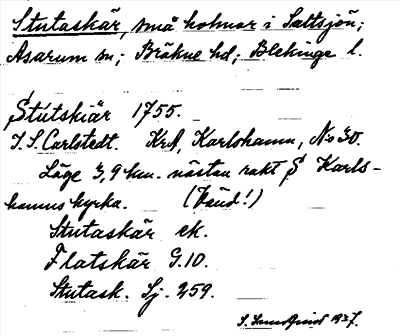 Stutaskär, små holmar i Saltsjön;
Asarum sn; Bräkne hd; Blekinge l.
Stutskiär 1755.
J. S. Carlstedt. KrA, Karlshamn, No 30.
Läge 3,9 km. nästan rakt S Karls-
hamns kyrka. (Vänd!)
Stutaskär ek.
Flatskär G.10.
Stutask. Sj. 259.
1937.